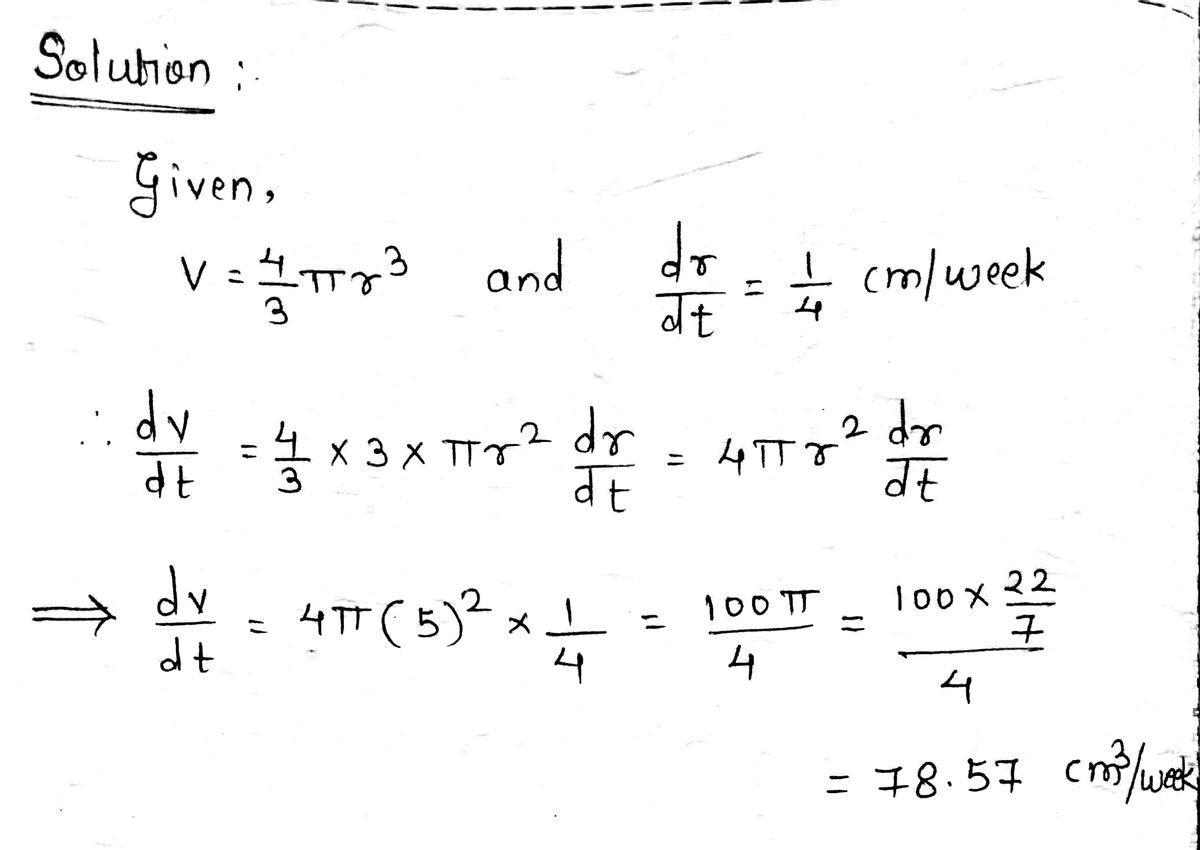 Solution :
Given,
V = 4/3 πr³ and dr/dt = 1/4 cm/week
∴ dv/dt = 4/3 × 3 × πr² dr/dt = 4πr² dr/dt
⟹ dv/dt = 4π(5)² × 1/4 = 100π/4 = (100 × 22/7)/4
= 78.57 cm³/week